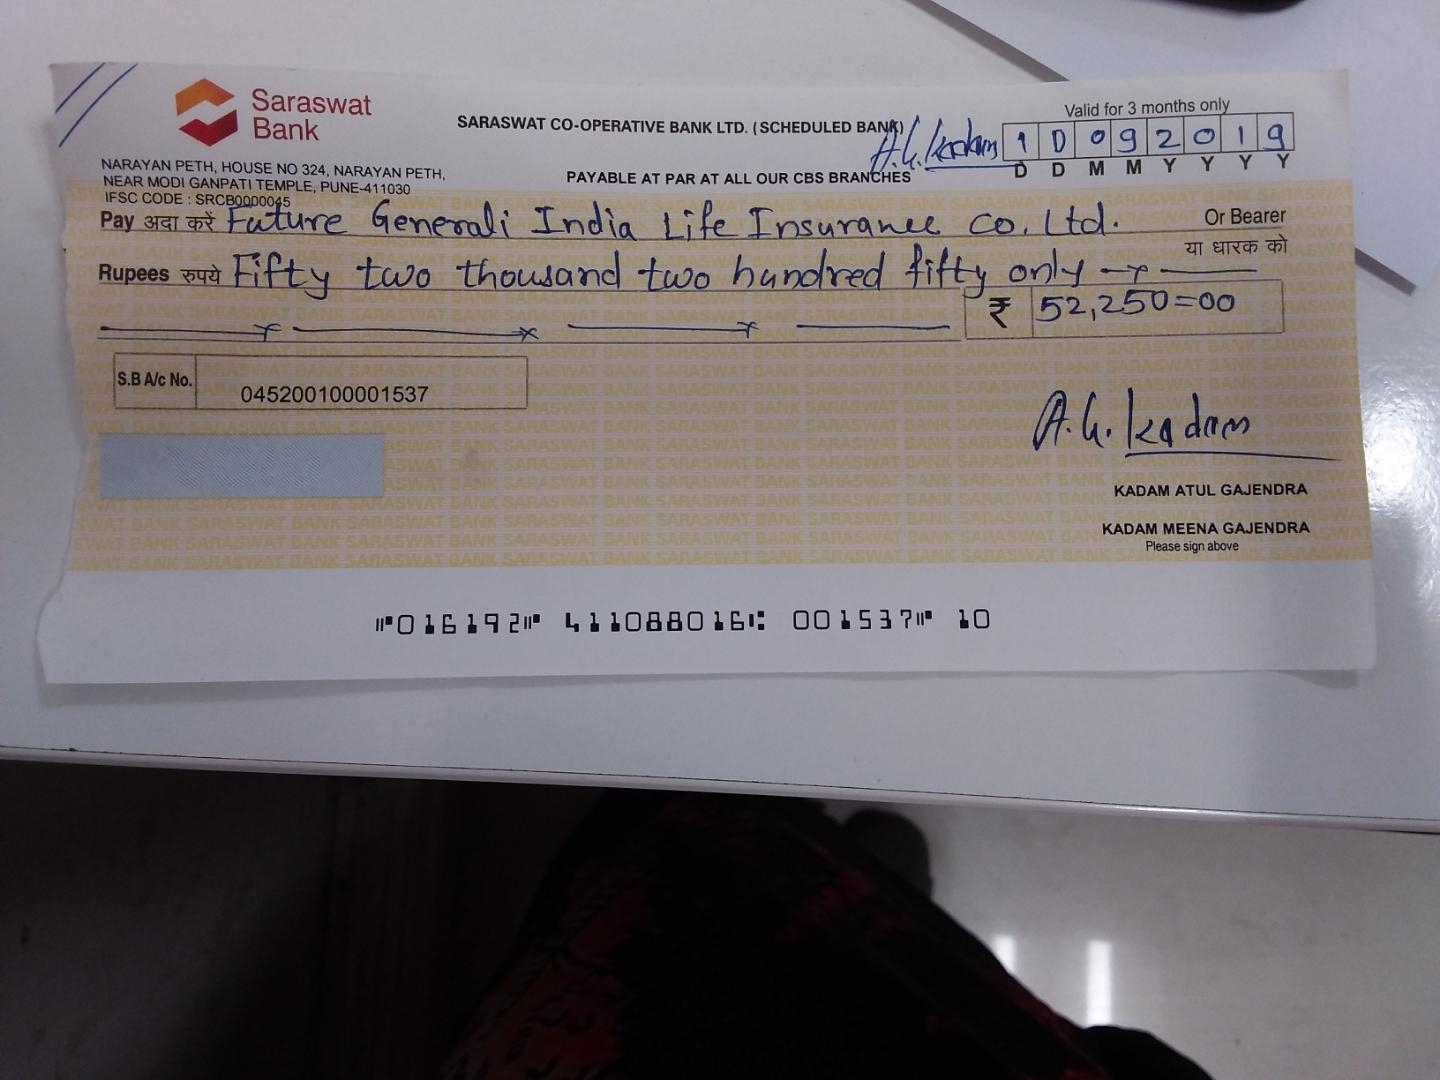 Saraswat
Bank
SARASWAT CO-OPERATIVE BANK LTD. (SCHEDULED BANK)
Valid for 3 months only
A.G. Kadam
10092019
D D M M Y Y Y Y
NARAYAN PETH, HOUSE NO 324, NARAYAN PETH,
NEAR MODI GANPATI TEMPLE, PUNE-411030
IFSC CODE : SRCB0000045
PAYABLE AT PAR AT ALL OUR CBS BRANCHES
Pay अदा करें Future Generali India Life Insurance Co. Ltd. Or Bearer
या धारक को
Rupees रुपये Fifty two thousand two hundred fifty only
₹ 52,250=00
S.B A/c No. 045200100001537
A.G. Kadam
KADAM ATUL GAJENDRA
KADAM MEENA GAJENDRA
Please sign above
⑈016192⑈ 411088016⑆ 001537⑈ 10